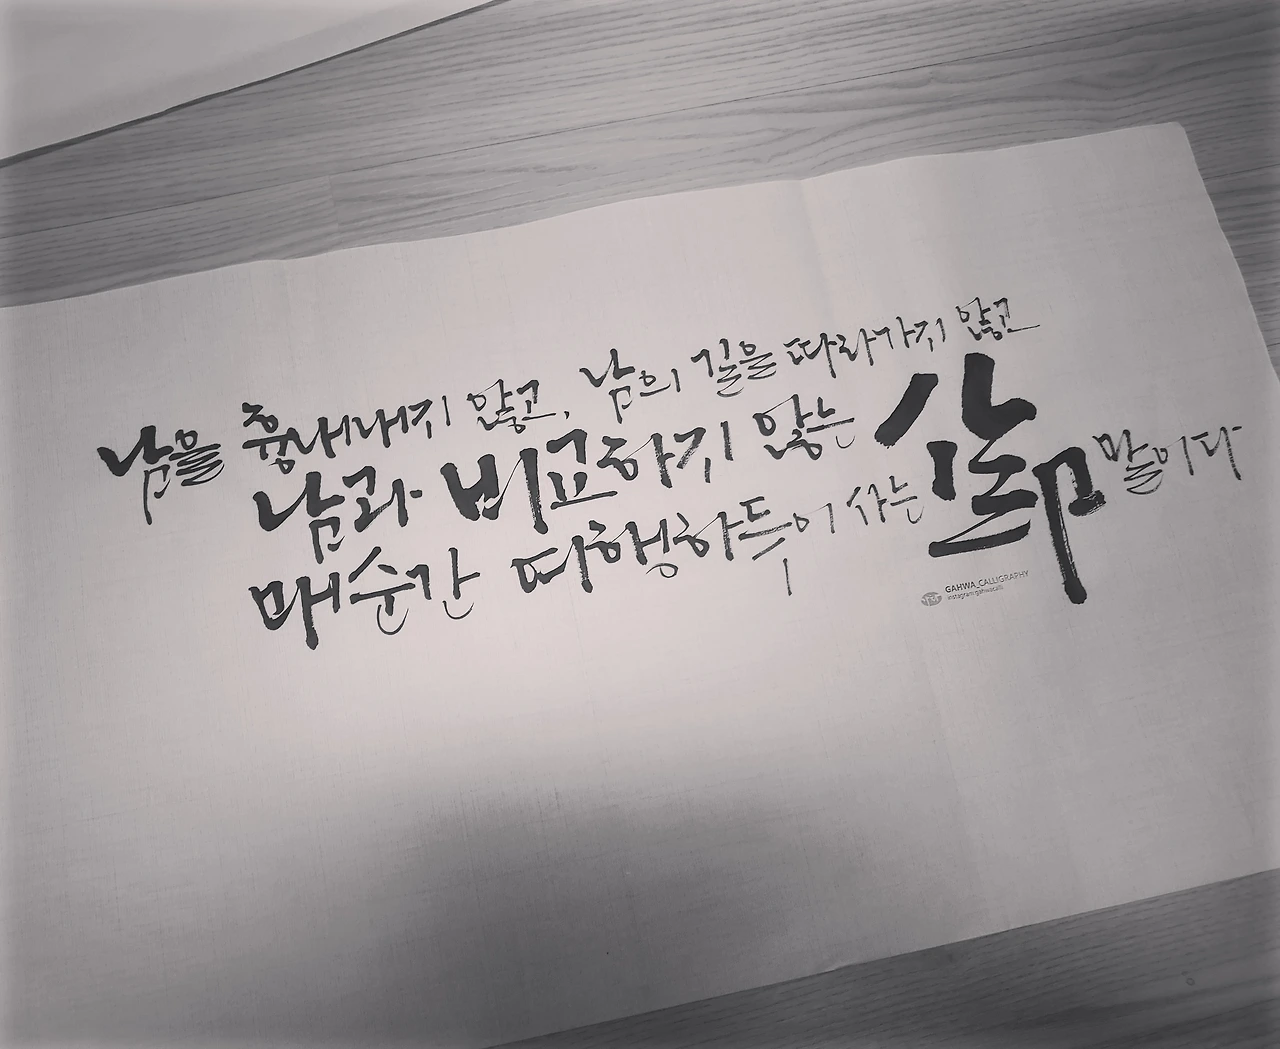 남을 흉내내지 않고, 남의 길을 따라가지 않고
남과 비교하지 않는
매순간 여행하듯이 사는 삶 말이다
GAHWA_CALLIGRAPHY
instagram:gahwacalli